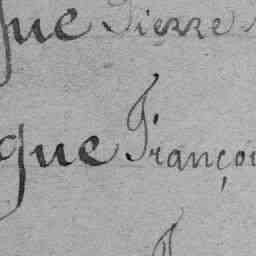 que Pierre
que Françoi